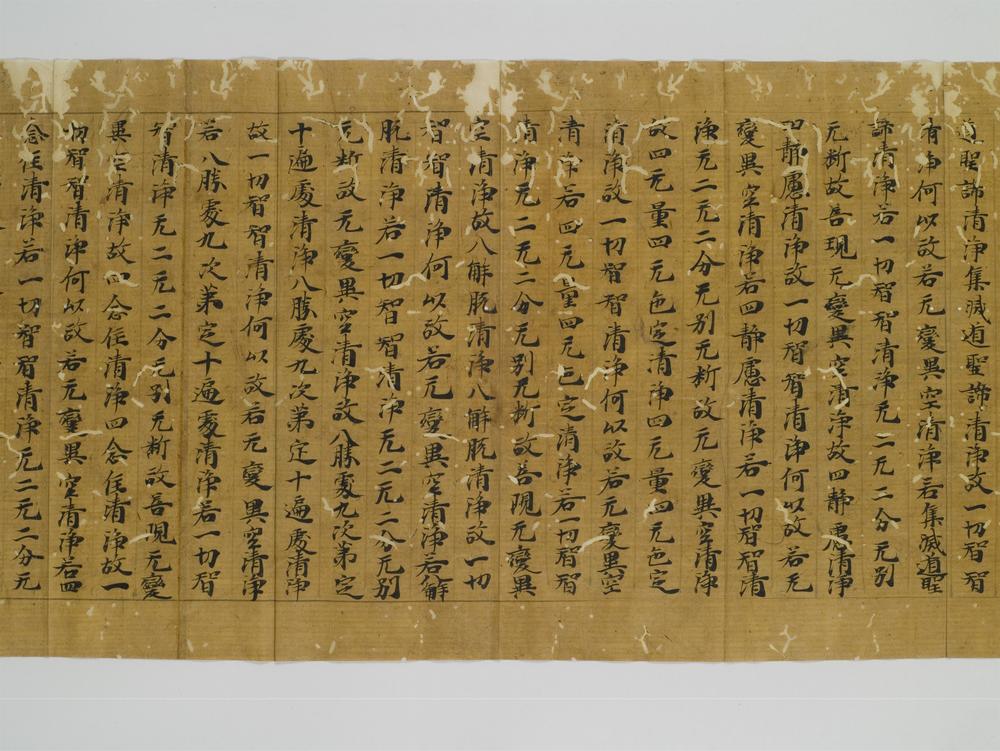 道聖諦清淨集滅道聖諦清淨故一切智智
清淨何以故若无變異空清淨若集滅道聖
諦清淨若一切智智清淨无二无二分无別
无断故善現无變異空清淨故四靜慮清淨
四靜慮清淨故一切智智清淨何以故若无
變異空清淨若四靜慮清淨若一切智智清
淨无二无二分无別无断故无變異空清淨
故四无量四无色定清淨四无量四无色定
清淨故一切智智清淨何以故若无變異空
清淨若四无量四无色定清淨若一切智智
清淨无二无二分无別无断故善現无變異
空清淨故八解脫清淨八解脫清淨故一切
智智清淨何以故若无變異空清淨若八解
脫清淨若一切智智清淨无二无二分无別
无断故无變異空清淨故八勝處九次第定
十遍處清淨八勝處九次第定十遍處清淨
故一切智智清淨何以故若无變異空清淨
若八勝處九次第定十遍處清淨若一切智
智清淨无二无二分无別无断故善現无變
異空清淨故四念住清淨四念住清淨故一
切智智清淨何以故若无變異空清淨若四
念住清淨若一切智智清淨无二无二分无